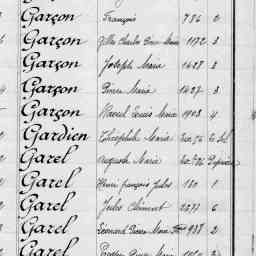 Garçon François 786 2
Garçon Gilles Charles Pierre Marie 1172 3
Garçon Joseph Marie 1427 3
Garçon Pierre Marie 1427 3
Garçon Raoul Louis Marie 1903 4
Gardien Théophile Marie
Garel Auguste Marie
Garel Henri François Jules 180 1
Garel Jules Clément 2577 6
Garel Léonard Pierre Marie 937 2
Garel Marie